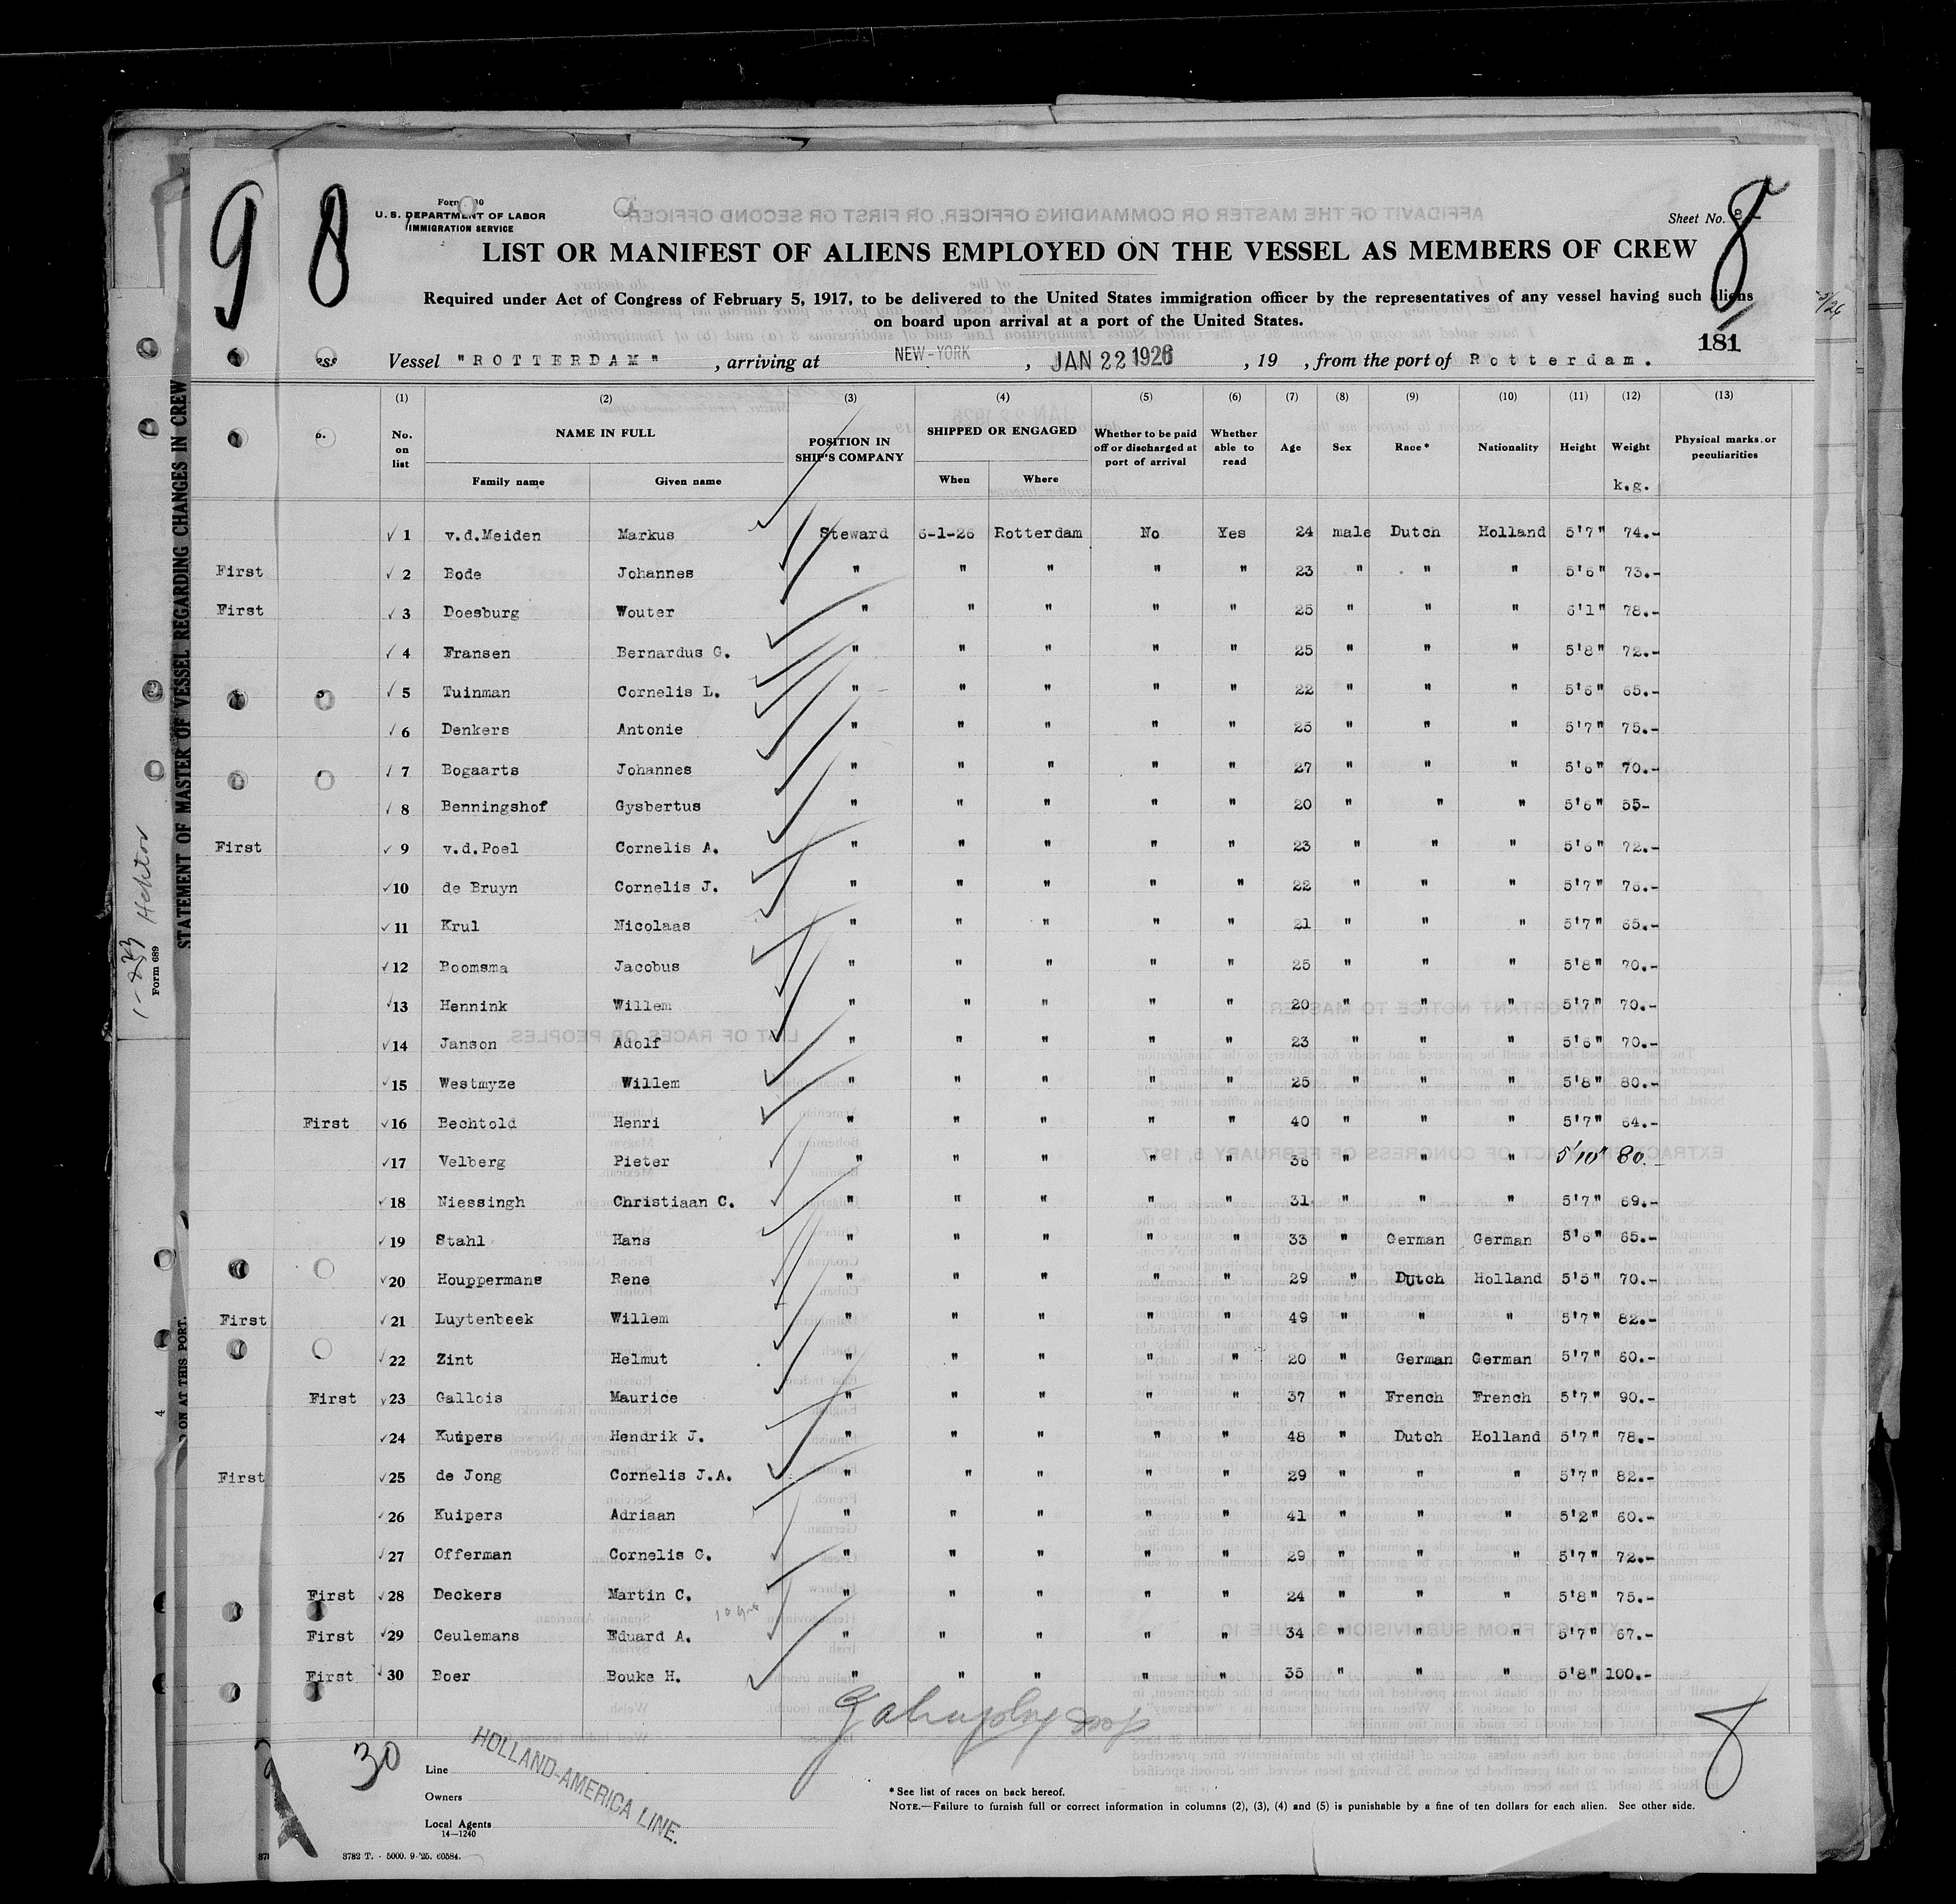 9 8 8
U. S. DEPARTMENT OF LABOR
IMMIGRATION SERVICE
Sheet No. 8
LIST OR MANIFEST OF ALIENS EMPLOYED ON THE VESSEL AS MEMBERS OF CREW
Required under Act of Congress of February 5, 1917, to be delivered to the United States immigration officer by the representatives of any vessel having such aliens
on board upon arrival at a port of the United States.
181
Vessel "ROTTERDAM", arriving at NEW-YORK, JAN 22 1926, 19 , from the port of Rotterdam.
(1) (2) (3) (4) (5) (6) (7) (8) (9) (10) (11) (12) (13)
No. on list NAME IN FULL POSITION IN SHIP'S COMPANY SHIPPED OR ENGAGED Whether to be paid off or discharged at port of arrival Whether able to read Age Sex Race* Nationality Height Weight Physical marks or peculiarities
Family name Given name When Where k.g.
✓ 1 v.d.Meiden Markus Steward 6-1-26 Rotterdam No Yes 24 male Dutch Holland 5'7" 74.-
First ✓ 2 Bode Johannes " " " " " 23 " " " 5'6" 73.-
First ✓ 3 Doesburg Wouter " " " " " 25 " " " 6'1" 78.-
✓ 4 Fransen Bernardus G. " " " " " 25 " " " 5'8" 72.-
✓ 5 Tuinman Cornelis L. " " " " " 22 " " " 5'6" 65.-
✓ 6 Denkers Antonie " " " " " 25 " " " 5'7" 75.-
✓ 7 Bogaarts Johannes " " " " " 27 " " " 5'6" 70.-
✓ 8 Benningshof Gysbertus " " " " " 20 " " " 5'6" 55-
First ✓ 9 v.d.Poel Cornelis A. " " " " " 23 " " " 5'6" 72.-
✓ 10 de Bruyn Cornelis J. " " " " " 22 " " " 5'7" 76.-
✓ 11 Krul Nicolaas " " " " " 21 " " " 5'7" 65.-
✓ 12 Boomsma Jacobus " " " " " 25 " " " 5'8" 70.-
✓ 13 Hennink Willem " " " " " 20 " " " 5'7" 70.-
✓ 14 Janson Adolf " " " " " 23 " " " 5'6" 70.-
✓ 15 Westmyze Willem " " " " " 25 " " " 5'8" 80.-
First ✓ 16 Bechtold Henri " " " " " 40 " " " 5'7" 64.-
✓ 17 Velberg Pieter " " " " " 36 " " " 5'10" 80.
✓ 18 Niessingh Christiaan C. " " " " " 31 " " " 5'7" 69.-
✓ 19 Stahl Hans " " " " " 33 " German German 5'6" 65.-
✓ 20 Houppermans Rene " " " " " 29 " Dutch Holland 5'5" 70.-
First ✓ 21 Luytenbeek Willem " " " " " 49 " " " 5'7" 82.-
✓ 22 Zint Helmut " " " " " 20 " German German 5'7" 60.-
First ✓ 23 Gallois Maurice " " " " " 37 " French French 5'7" 90.-
✓ 24 Kuipers Hendrik J. " " " " " 48 " Dutch Holland 5'7" 78.-
First ✓ 25 de Jong Cornelis J.A. " " " " " 29 " " " 5'7" 82.-
✓ 26 Kuipers Adriaan " " " " " 41 " " " 5'2" 60.-
✓ 27 Offerman Cornelis G. " " " " " 29 " " " 5'7" 72.-
First ✓ 28 Deckers Martin C. " " " " " 24 " " " 5'8" 75.-
First ✓ 29 Ceulemans Eduard A. " " " " " 34 " " " 5'7" 67.-
First ✓ 30 Boer Bouke H. " " " " " 35 " " " 5'8" 100.-
30
8
Line
Owners
Local Agents
HOLLAND-AMERICA LINE.
14—1240
3782 T. - 5000. 9-'25. 60584.
* See list of races on back hereof.
NOTE.—Failure to furnish full or correct information in columns (2), (3), (4) and (5) is punishable by a fine of ten dollars for each alien. See other side.
STATEMENT OF MASTER OF VESSEL REGARDING CHANGES IN CREW
ON AT THIS PORT.
Form 689
4